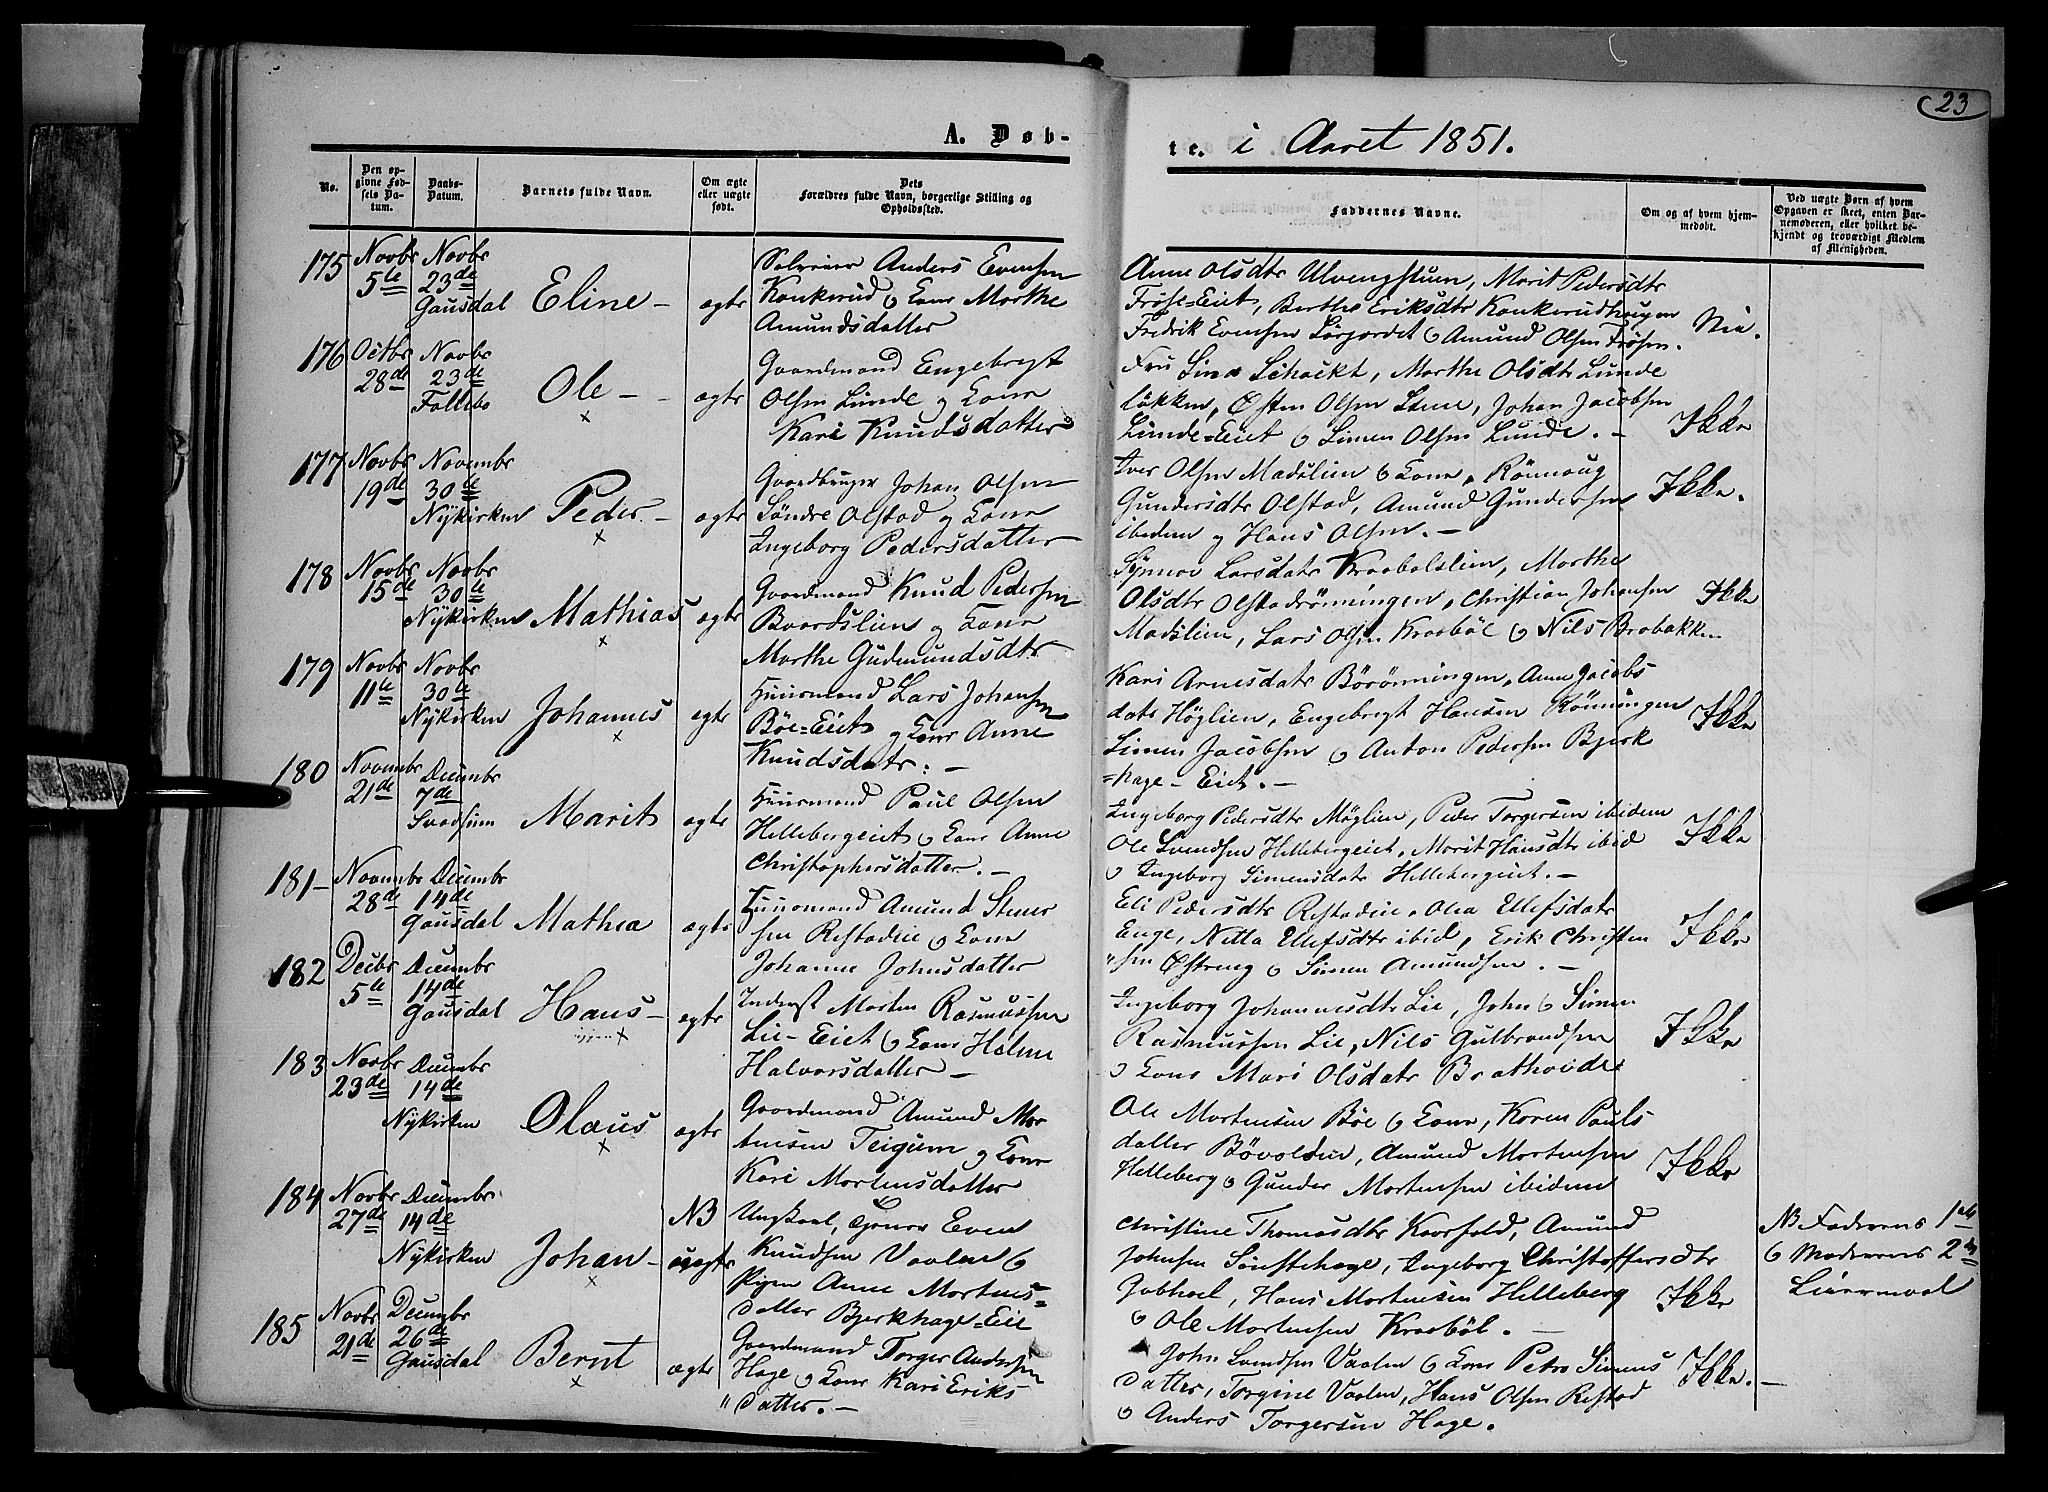 23
A. Døb-
te. i Aaret 1851.
No.
Den op-
givne Fød-
sels Da-
tum.
Daabs-
Datum.
Barnets fulde Navn.
Om ægte
eller uægte
født.
Dets
Forældres fulde Navn, borgerlige Stilling og
Opholdssted.
Faddernes Navne.
Om og af hvem hjem-
medøbt.
Ved uægte Børn af hvem
Opgaven er skeet, enten Bar-
nemoderen, eller hvilket be-
kjendt og troværdigt Medlem
af Menigheden.
175
Novbr
5te
Novbr
23de
Gausdal
Eline -
ægte
Selveier Anders Evensen
Kankerud & Kone Marthe
Amundsdatter
Anne Olsdtr Ulvengstuen, Marit Pedersdtr
Frøse-Eiet, Berthe Eriksdtr Kankerudhaugen
Fredrik Evensen Lørjordet & Amund Olsen Frøsen.
Nei.
176
Octbr
28de
Novbr
23de
Follebo
Ole -
ægte
Gaardmand Engebregt
Olsen Lunde og Kone
Kari Knudsdatter
Fru Lina Schackt, Marthe Olsdtr Lunde
løkken, Østen Olsen Stene, Johan Jacobsen
Lunde-Eiet & Simen Olsen Lunde. -
Ikke
177
Novbr
19de
Novembr
30te
Nykirken
Peder. -
ægte
Gaardbruger Johan Olsen
Søndre Olstad og Kone
Ingeborg Pedersdatter
Iver Olsen Madslien & Kone, Rønnaug
Gundersdtr Olstad, Amund Gundersen
ibidem og Hans Olsen. -
Ikke.
178
Novbr
15de
Novbr
30te
Nykirken
Mathias
ægte
Gaardmand Knud Pedersen
Baardslien og Kone
Marthe Gudmundsdtr
Synnøv Larsdatr Kraabølslien, Marthe
Olsdtr Olstadrønningen, Christian Johansen
Madslien, Lars Olsen Kraabøl & Nils Brobakken
Ikke
179
Novbr
11te
Novbr
30te
Nykirken
Johannes
ægte
Huusmand Lars Johansen
Bøe-Eiet og Kone Anne
Knudsdatr. -
Kari Arnesdatr Børønningen, Anne Jacobs
datr Høglien, Engebregt Hansen Rønningen
Simen Jacobsen & Anton Pedersen Bjerk
=hage - Eiet. -
Ikke
180
Novembr
21de
Decembr
7de
Svadsum
Marit
ægte
Huusmand Paul Olsen
Hellebergeiet & Kone Anne
Christophersdatter. -
Ingeborg Pedersdtr Møglien, Peder Torgersen ibidem
Ole Svendsen Hellebergeiet, Marit Hansdtr ibid
& Ingeborg Simensdatr Hellebergeiet. -
Ikke
181 -
Novembr
28de
Decembr
14de
Gausdal
Mathea
ægte
Huusmand Amund Stener
sen Restadeie & Kone
Johanne Johnsdatter
Eli Pedersdtr Restadeie, Olea Ellefsdatr
Enge, Nitta Ellefsdtr ibid, Erik Christen
"sen Østreng & Simen Amundsen. -
Ikke
182
Decbr
5te
Decembr
14de
Gausdal
Hans -
ægte
Inderst Morten Rasmussen
Lie - Eiet & Kone Helene
Halvorsdatter -
Ingeborg Johannesdtr Lie, John & Simen
Rasmussen Lie, Nils Gulbrandsen
& Kone Mari Olsdatr Brathoide
Ikke
183
Novbr
23de
Decembr
14de
Nykirken
Olaus
ægte
Gaardmand Amund Mor
tensen Teigum og Kone
Kari Mortensdatter
Ole Mortensen Bøe & Kone, Karen Pauls
datter Bøvolden, Amund Mortensen
Helleberg & Gunder Mortensen ibidem
Ikke
184
Novbr
27de
Decembr
14de
Nykirken
Johan -
NB
uægte
Ungkarl, Even
Knudsen Vaalen &
Pigen Anne Mortens=
datter Bjerkhage=Eie
Christine Thomasdtr Kaarfald, Amund
Johnsen Sønstehage, Ingeborg Christoffersdtr
Jobhoel, Hans Mortensen Helleberg
& Ole Mortensen Kraabøl. -
Ikke
NB Faderens 1ste
& Moderens 2det
Leiermaal
185
Novbr
21de
Decembr
26de
Gausdal
Bernt
ægte
Gaardmand Torger Andersen
Hage & Kone Kari Eriks
" datter. -
John Svendsen Vaalen & Kone Petra Simens
datter, Torgine Vaalen, Hans Olsen Restad
& Anders Torgersen Hage.
Ikke. -